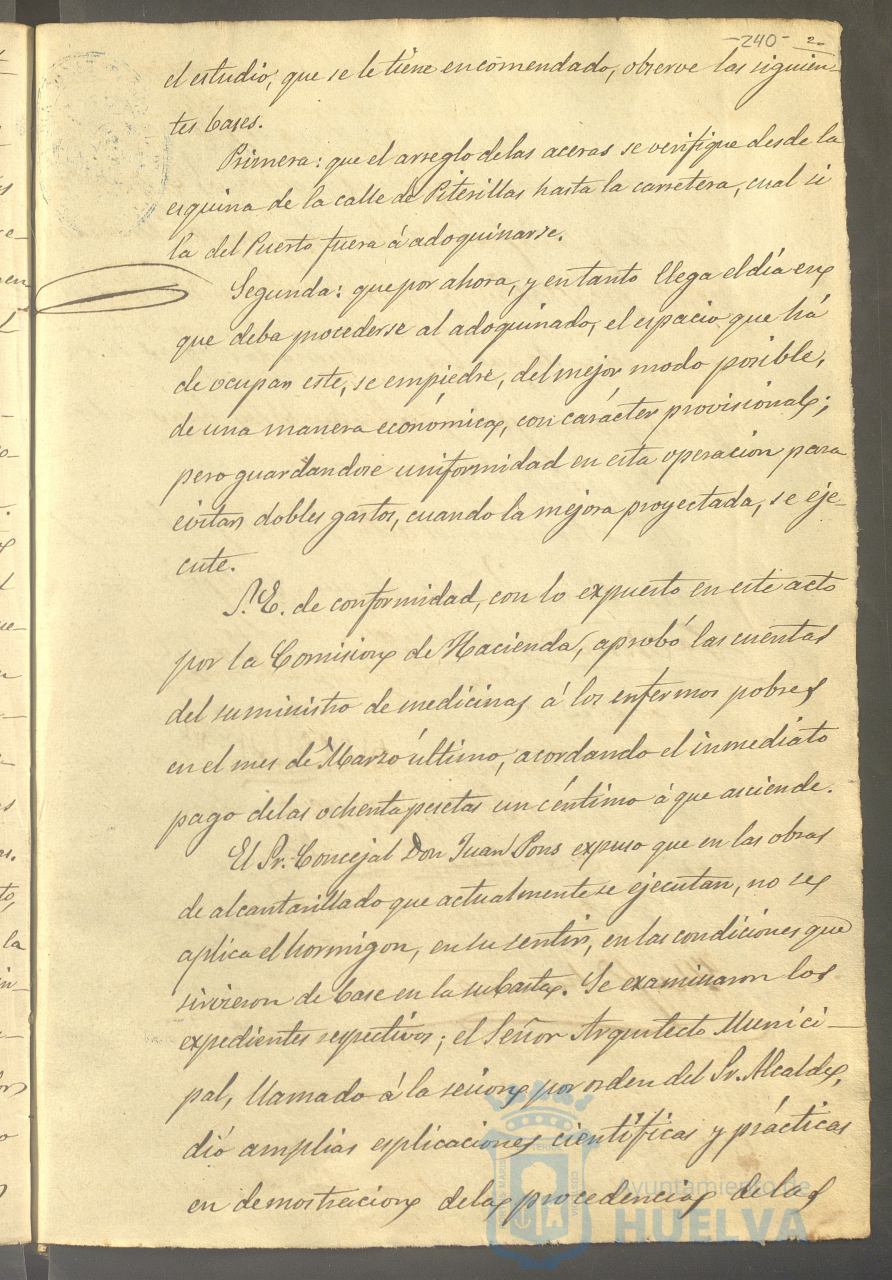 -240- 2
el estudio, que se le tiene encomendado, observe las siguien-
tes bases.
Primera: que el arreglo de las aceras se verifique desde la
esquina de la calle de Piterillas hasta la carretera, cual si
la del Puerto fuera á adoquinarse.
Segunda: que por ahora, y en tanto llega el día en
que deba procederse al adoquinado, el espacio que há
de ocupar este, se empiedre, del mejor modo posible,
de una manera económica, con carácter provisional;
pero guardandose uniformidad en esta operacion para
evitar dobles gastos, cuando la mejora proyectada, se eje-
cute.
S.E. de conformidad, con lo expuesto en este acto
por la Comision de Hacienda, aprobó las cuentas
del suministro de medicinas á los enfermos pobres
en el mes de Marzo último, acordando el inmediato
pago de las ochenta pesetas un céntimo á que asciende.
El Sr. Concejal Don Juan Pons expuso que en las obras
de alcantarillado que actualmente se ejecutan, no se
aplica el hormigon, en su sentir, en las condiciones que
sirvieron de base en la subasta. Se examinaron los
expedientes respectivos; el Señor Arquitecto Munici-
pal, llamado á la sesion por orden del Sr. Alcalde,
dió amplias esplicaciones científicas y prácticas
en demostracion de la procedencia de las
Ayuntamiento de
HUELVA